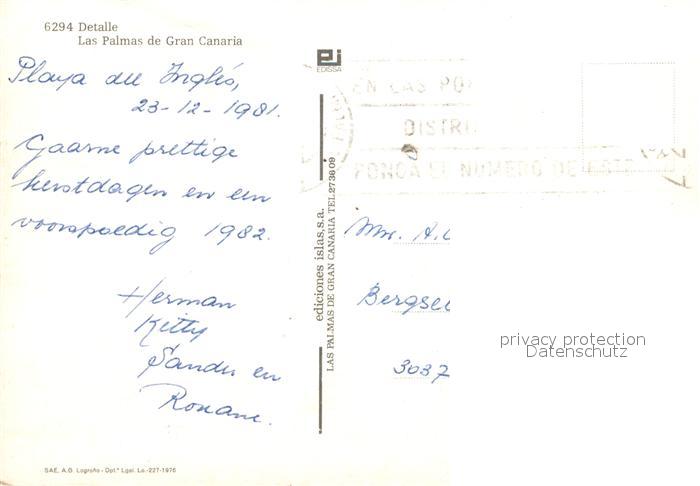 6294 Detalle
Las Palmas de Gran Canaria
Playa del Inglés,
23-12-1981.
Gaarne prettige
kerstdagen en een
voorspoedig 1982.
Herman
Kitty
Sander en
EDISSA
EN LAS PO
DISTRI
PONGA EL NUMERO DE ESTE
ediciones islas, s.a.
LAS PALMAS DE GRAN CANARIA TEL. 273609
A.
3037
privacy protection
Datenschutz
SAE, A.G. Logroño - Dpt.º Lgal. Lo.-227-1976